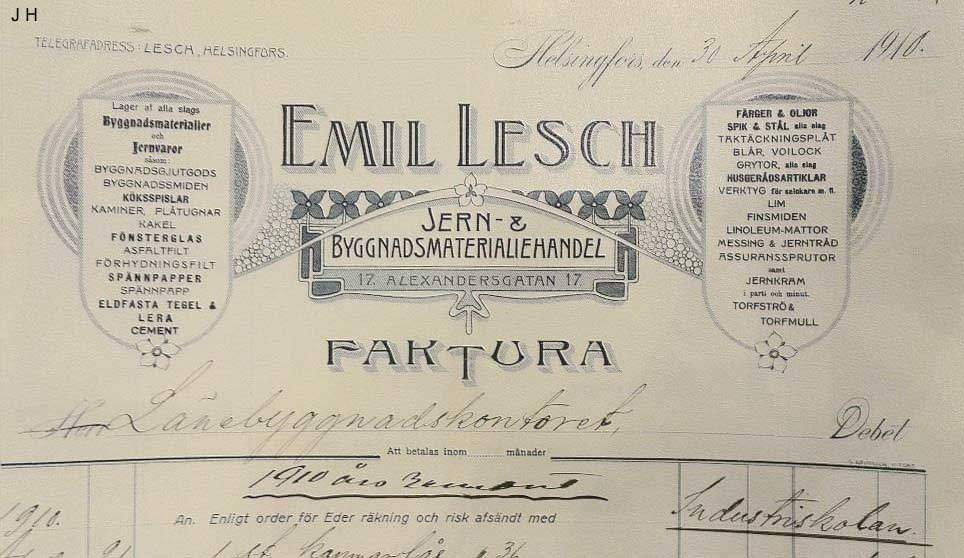 J H
TELEGRAFADRESS: LESCH, HELSINGFORS.
Helsingfors, den 30 April 1910.
Lager af alla slags
Byggnadsmaterialier
och
Jernvaror
såsom:
BYGGNADSGJUTGODS
BYGGNADSSMIDEN
KÖKSSPISLAR
KAMINER, PLÅTUGNAR
KAKEL
FÖNSTERGLAS
ASFALTFILT
FÖRHYDNINGSFILT
SPÄNNPAPPER
SPÄNNPAPP
ELDFASTA TEGEL &
LERA
CEMENT
EMIL LESCH
JERN- &
BYGGNADSMATERIALIEHANDEL
17. ALEXANDERSGATAN 17.
FAKTURA
FÄRGER & OLJOR
SPIK & STÅL alla slag
TAKTÄCKNINGSPLÅT
BLÅR, VOILOCK
GRYTOR, alla slag
HUSGERÅDSARTIKLAR
VERKTYG för selakare m. fl.
LIM
FINSMIDEN
LINOLEUM-MATTOR
MESSING & JERNTRÅD
ASSURANSSPRUTOR
samt
JERNKRAM
i parti och minut.
TORFSTRÖ &
TORFMULL
Herr Länebyggnadskontoret, Debet
Att betalas inom månader
1910 års
An. Enligt order för Eder räkning och risk afsändt med
Industriskolan.
1910.
1 st. kammarlås